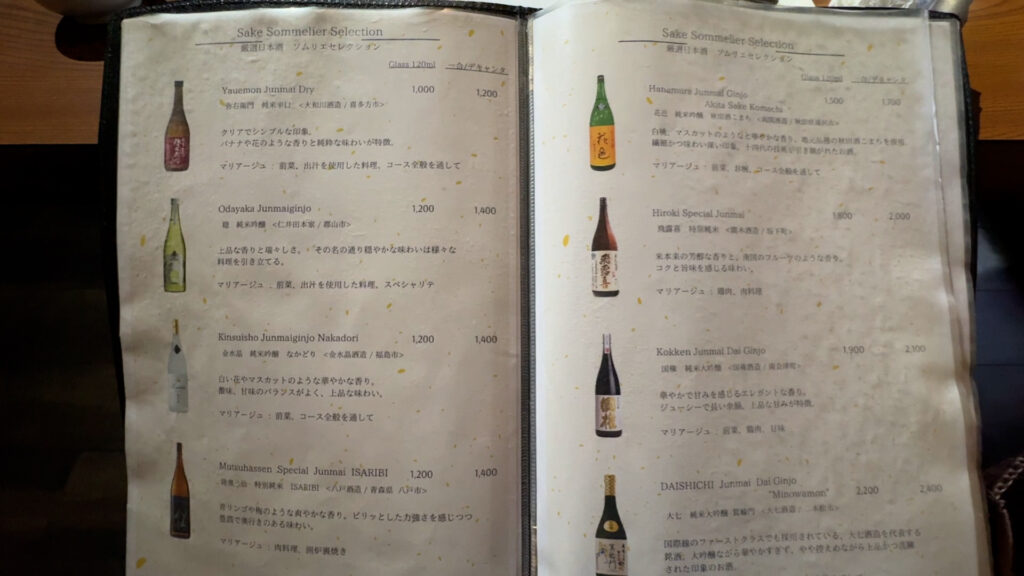 Sake Sommelier Selection
厳選日本酒 ソムリエセレクション
Glass 120ml 一合/デキャンタ
Yauemon Junmai Dry 1,000 1,200
弥右衛門 純米辛口 <大和川酒造 / 喜多方市>
クリアでシンプルな印象。
バナナや花のような香りと純粋な味わいが特徴。
マリアージュ : 前菜、出汁を使用した料理、コース全般を通して
Odayaka Junmaiginjo 1,200 1,400
穏 純米吟醸 <仁井田本家 / 郡山市>
上品な香りと瑞々しさ。 その名の通り穏やかな味わいは様々な
料理を引き立てる。
マリアージュ : 前菜、出汁を使用した料理、スペシャリテ
Kinsuisho Junmaiginjo Nakadori 1,200 1,400
金水晶 純米吟醸 なかどり <金水晶酒造 / 福島市>
白い花やマスカットのような華やかな香り。
酸味、甘味のバランスがよく、上品な味わい。
マリアージュ : 前菜、コース全般を通して
Mutsuhassen Special Junmai ISARIBI 1,200 1,400
陸奥八仙 特別純米 ISARIBI <八戸酒造 / 青森県 八戸市>
青リンゴや梅のような爽やかな香り。ピリッとした力強さを感じつつ
豊潤で奥行きのある味わい。
マリアージュ : 肉料理、囲炉裏焼き
Sake Sommelier Selection
厳選日本酒 ソムリエセレクション
Glass 120ml 一合/デキャンタ
Hanamura Junmai Ginjo 1,500 1,700
Akita Sake Komachi
花邑 純米吟醸 秋田酒こまち <両関酒造 / 秋田県湯沢市>
白桃、マスカットのようなと華やかな香り。地元品種の秋田酒こまちを使用。
繊細かつ味わい深い印象。十四代の技術が引き継がれたお酒。
マリアージュ : 前菜、お椀、コース全般を通して
花邑
Hiroki Special Junmai 1,800 2,000
飛露喜 特別純米 <廣木酒造 / 坂下町>
米本来の芳醇な香りと、南国のフルーツのような香り。
コクと旨味を感じる味わい。
マリアージュ : 鶏肉、肉料理
飛露喜
Kokken Junmai Dai Ginjo 1,900 2,100
国権 純米大吟醸 <国権酒造 / 南会津町>
華やかで甘みを感じるエレガントな香り。
ジューシーで長い余韻、上品な甘みが特徴。
マリアージュ : 前菜、鶏肉、甘味
國権
DAISHICHI Junmai Dai Ginjo
"Minowamon" 2,200 2,400
大七 純米大吟醸 箕輪門 <大七酒造 / 二本松市>
国際線のファーストクラスでも採用されている、大七酒造を代表する
銘酒。大吟醸ながら華やかすぎず、やや控えめながら上品かつ洗練
された印象のお酒。